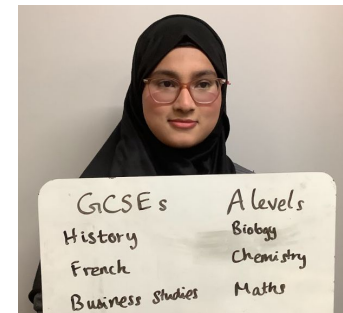 GCSEs
History
French
Business Studies
A levels
Biology
Chemistry
Maths